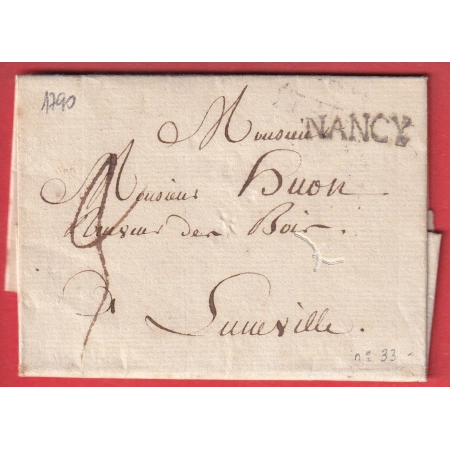 1790
Monsieur
NANCY
Monsieur Huon
des Bois.
a Luneville.
n° 33